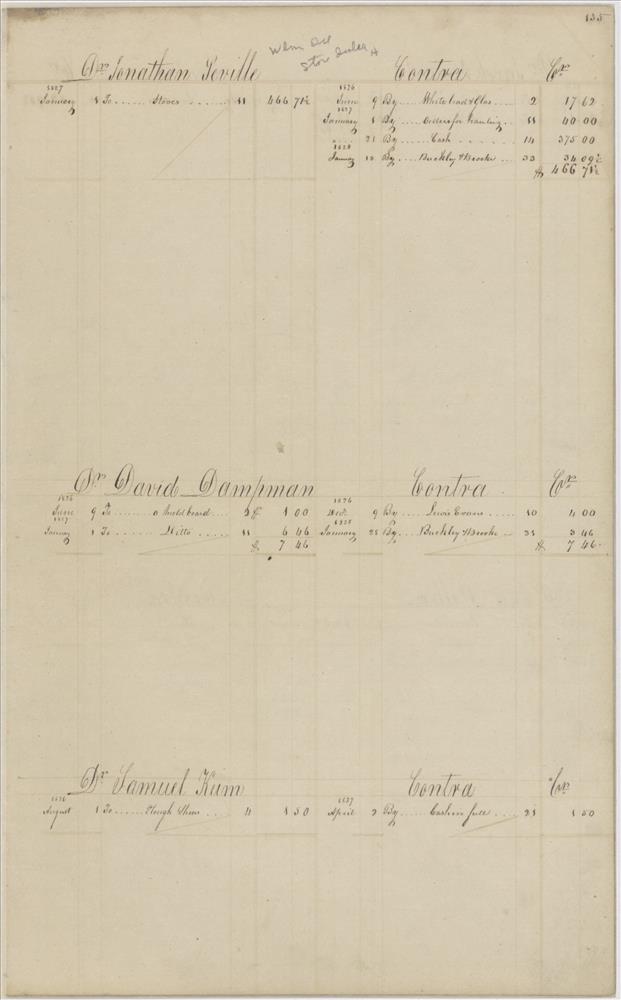 135
Dr. Jonathan Seville Contra Cr.
1827 1826
January 1 To ...... Stoves ...... 11 466 71½ June 9 By .... White lead & Glas .... 2 17 62
1827
January 1 By .... Orders for Hauling .. 11 40 00
.... 31 By .... Cash ...... 14 375 00
1828
January 18 By .... Buckley & Brooke ... 33 34 09½
$ 466 71½
Dr. David Dampman Contra Cr.
1826 1826
June 9 To ...... a Mould board .... 2 $ 1 00 Dec. 9 By .... Lewis Evans ..... 10 4 00
1827 1828
January 1 To ....... Ditto ..... 11 6 46 January 28 By .... Buckley & Brooke .. 33 3 46
$ 7 46 $ 7 46
Dr. Samuel Kum Contra Cr.
1826 1827
August 1 To ...... Plough Shear .... 4 1 50 April 2 By ..... Cash in full .... 21 1 50